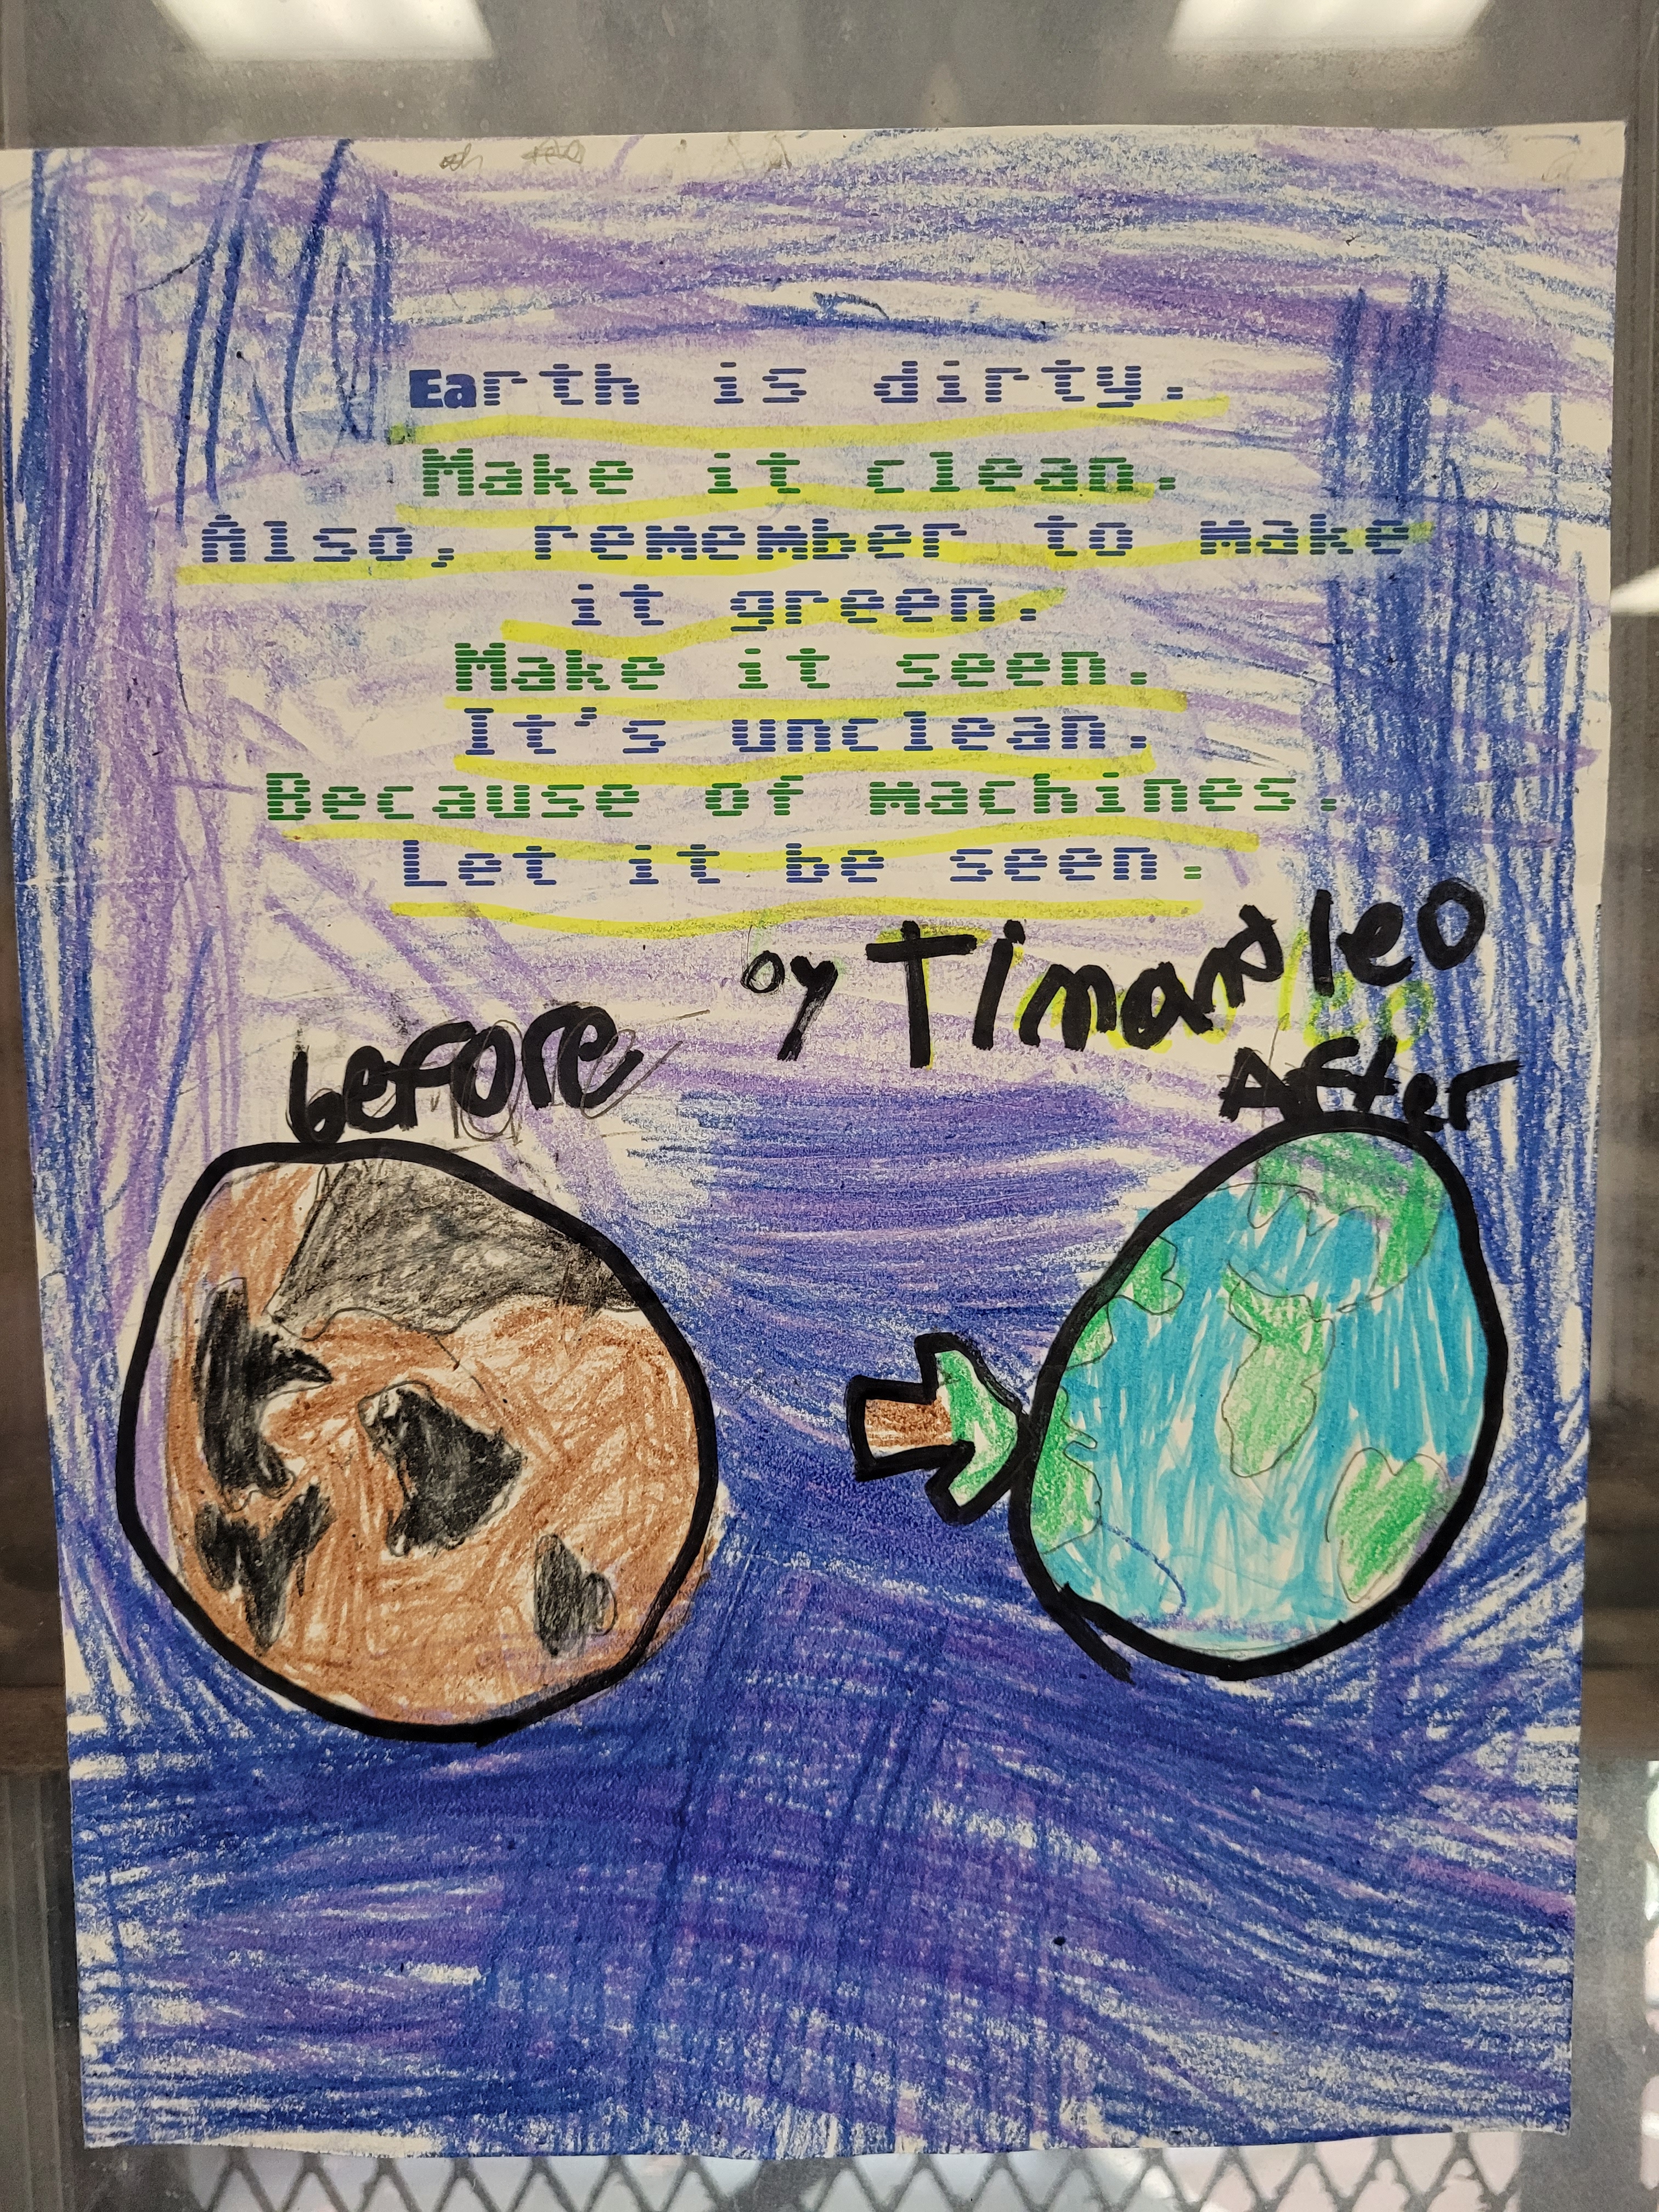 Earth is dirty.
Make it clean.
Also, remember to make
it green.
Make it seen.
It's unclean.
Because of machines.
Let it be seen.
by Tim and leo
before
After